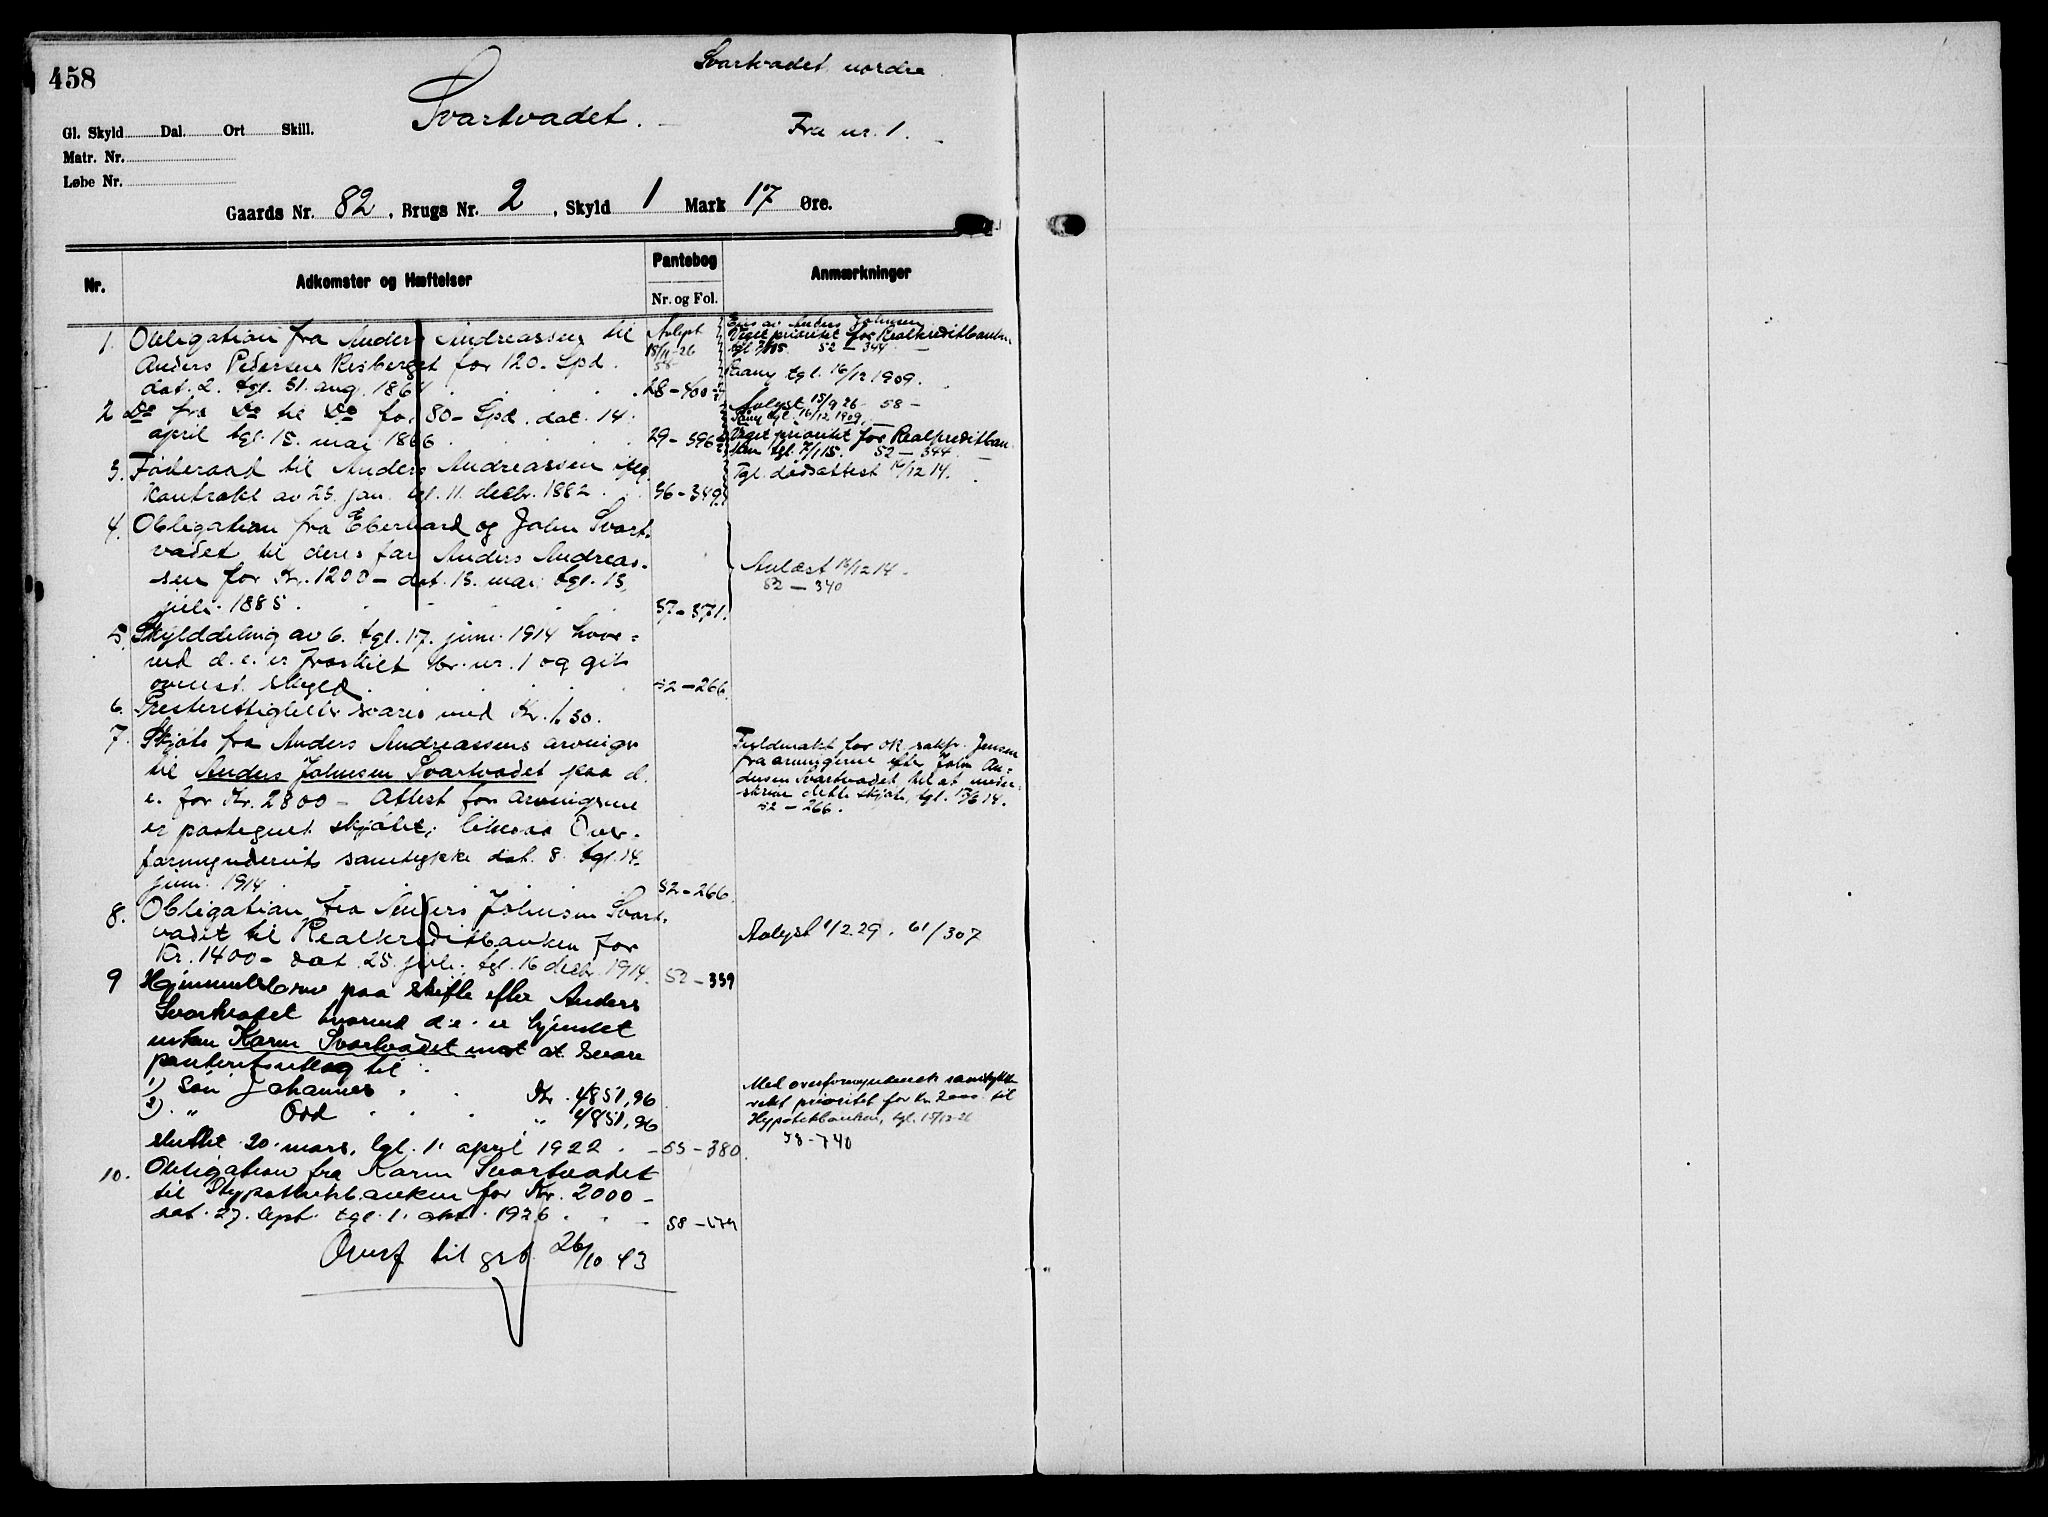 458
Svartvadet nordre
Svartvadet.
Fra nr. 1.
Gl. Skyld Dal. Ort Skill.
Matr. Nr.
Løbe Nr.
Gaards Nr. 82, Brugs Nr. 2, Skyld 1 Mark 17 Øre.
Nr. Adkomster og Hæftelser Pantebog Anmærkninger
Nr. og Fol.
1. Obligation fra Anders Andreassen til
Anders Pedersen Risberget for 120 - Spd.
dat. 2. tgl. 31. aug. 1864 28-400
Avlyst
15/11-26
58-
Eies av Anders Johnsen
Veget prioritet for Realkreditbanken
tgl. 7/1 15. 52-344
Kiany tgl. 16/12 1909.
2 Do fra Do til Do for 80 - Spd. dat. 14.
april tgl. 15. mai 1866 29-396
Avlyst 15/9 26 - 58 -
tgl. 16/12 1909.
Veget prioritet for Realkreditban-
ken tgl. 7/1 15. 52-344
3. Føderaad til Anders Andreassen iflg.
kontrakt av 25. jan. tgl. 11. decbr. 1882. 36-349
Tgl. dødsattest 16/12 14.
4. Obligation fra Eberhard og John Svart-
vadet til deres far Anders Andreas-
sen for Kr. 1200 - dat. 13. mai tgl. 13.
juli 1885. 37-371.
Avlæst 16/12 14.
52-340
5. Skylddeling av 6. tgl. 17. juni 1914 hvor-
ved d. e. er fraskilt br. nr. 1 og git
ovenst. skyld. 52-266.
6. Presterettigheter svares med Kr. 1.50.
7. Skjøte fra Anders Andreassens arvinger
til Anders Johnsen Svartvadet paa d.
e. for Kr. 2800 - Attest for arvingerne
er paategnet skjøtet; likesaa Over-
formynderiets samtykke dat. 8. tgl. 14.
juni 1914. 52-266.
Fuldmakt for ok. sakf. Jensen
fra arvingerne efter John An-
dersen Svartvadet til at under-
skrive dette skjøte, tgl. 17/6 14.
52-266.
8. Obligation fra Anders Johnsen Svart-
vadet til Realkreditbanken for
Kr. 1400 - dat. 25. juli, tgl. 16 decbr. 1914. 52-339
Avlyst 1/2.29. 61/307
9 Hjemmelsbrev paa skifte efter Anders
Svartvadet hvorved d. e. er hjemlet
enken Karen Svartvadet mot at svare
panteretsutlæg til
1) Søn Johannes Kr. 4851,96
2) " Odd " 4851,96
sluttet 20. mars, tgl. 1. april 1922 - 55-380.
Med overformynderiets samtykke
veket prioritet for Kr. 2000 til
Hypotekbanken, tgl. 15/12-26
58-740
10. Obligation fra Karen Svartvadet
til Hypothekbanken for Kr. 2000 -
dat. 27. sept. tgl. 1. okt. 1926. 58-
Overf til grb. 26/10 43